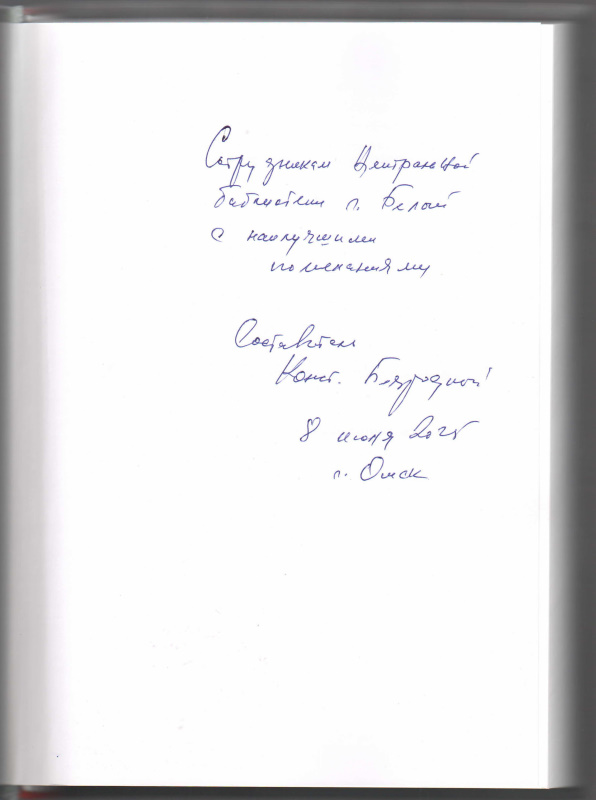 Сотрудникам Центральной
библиотеки г. Белый
с наилучшими
пожеланиями
Составитель
Конст.
8 июня 2025
г. Омск